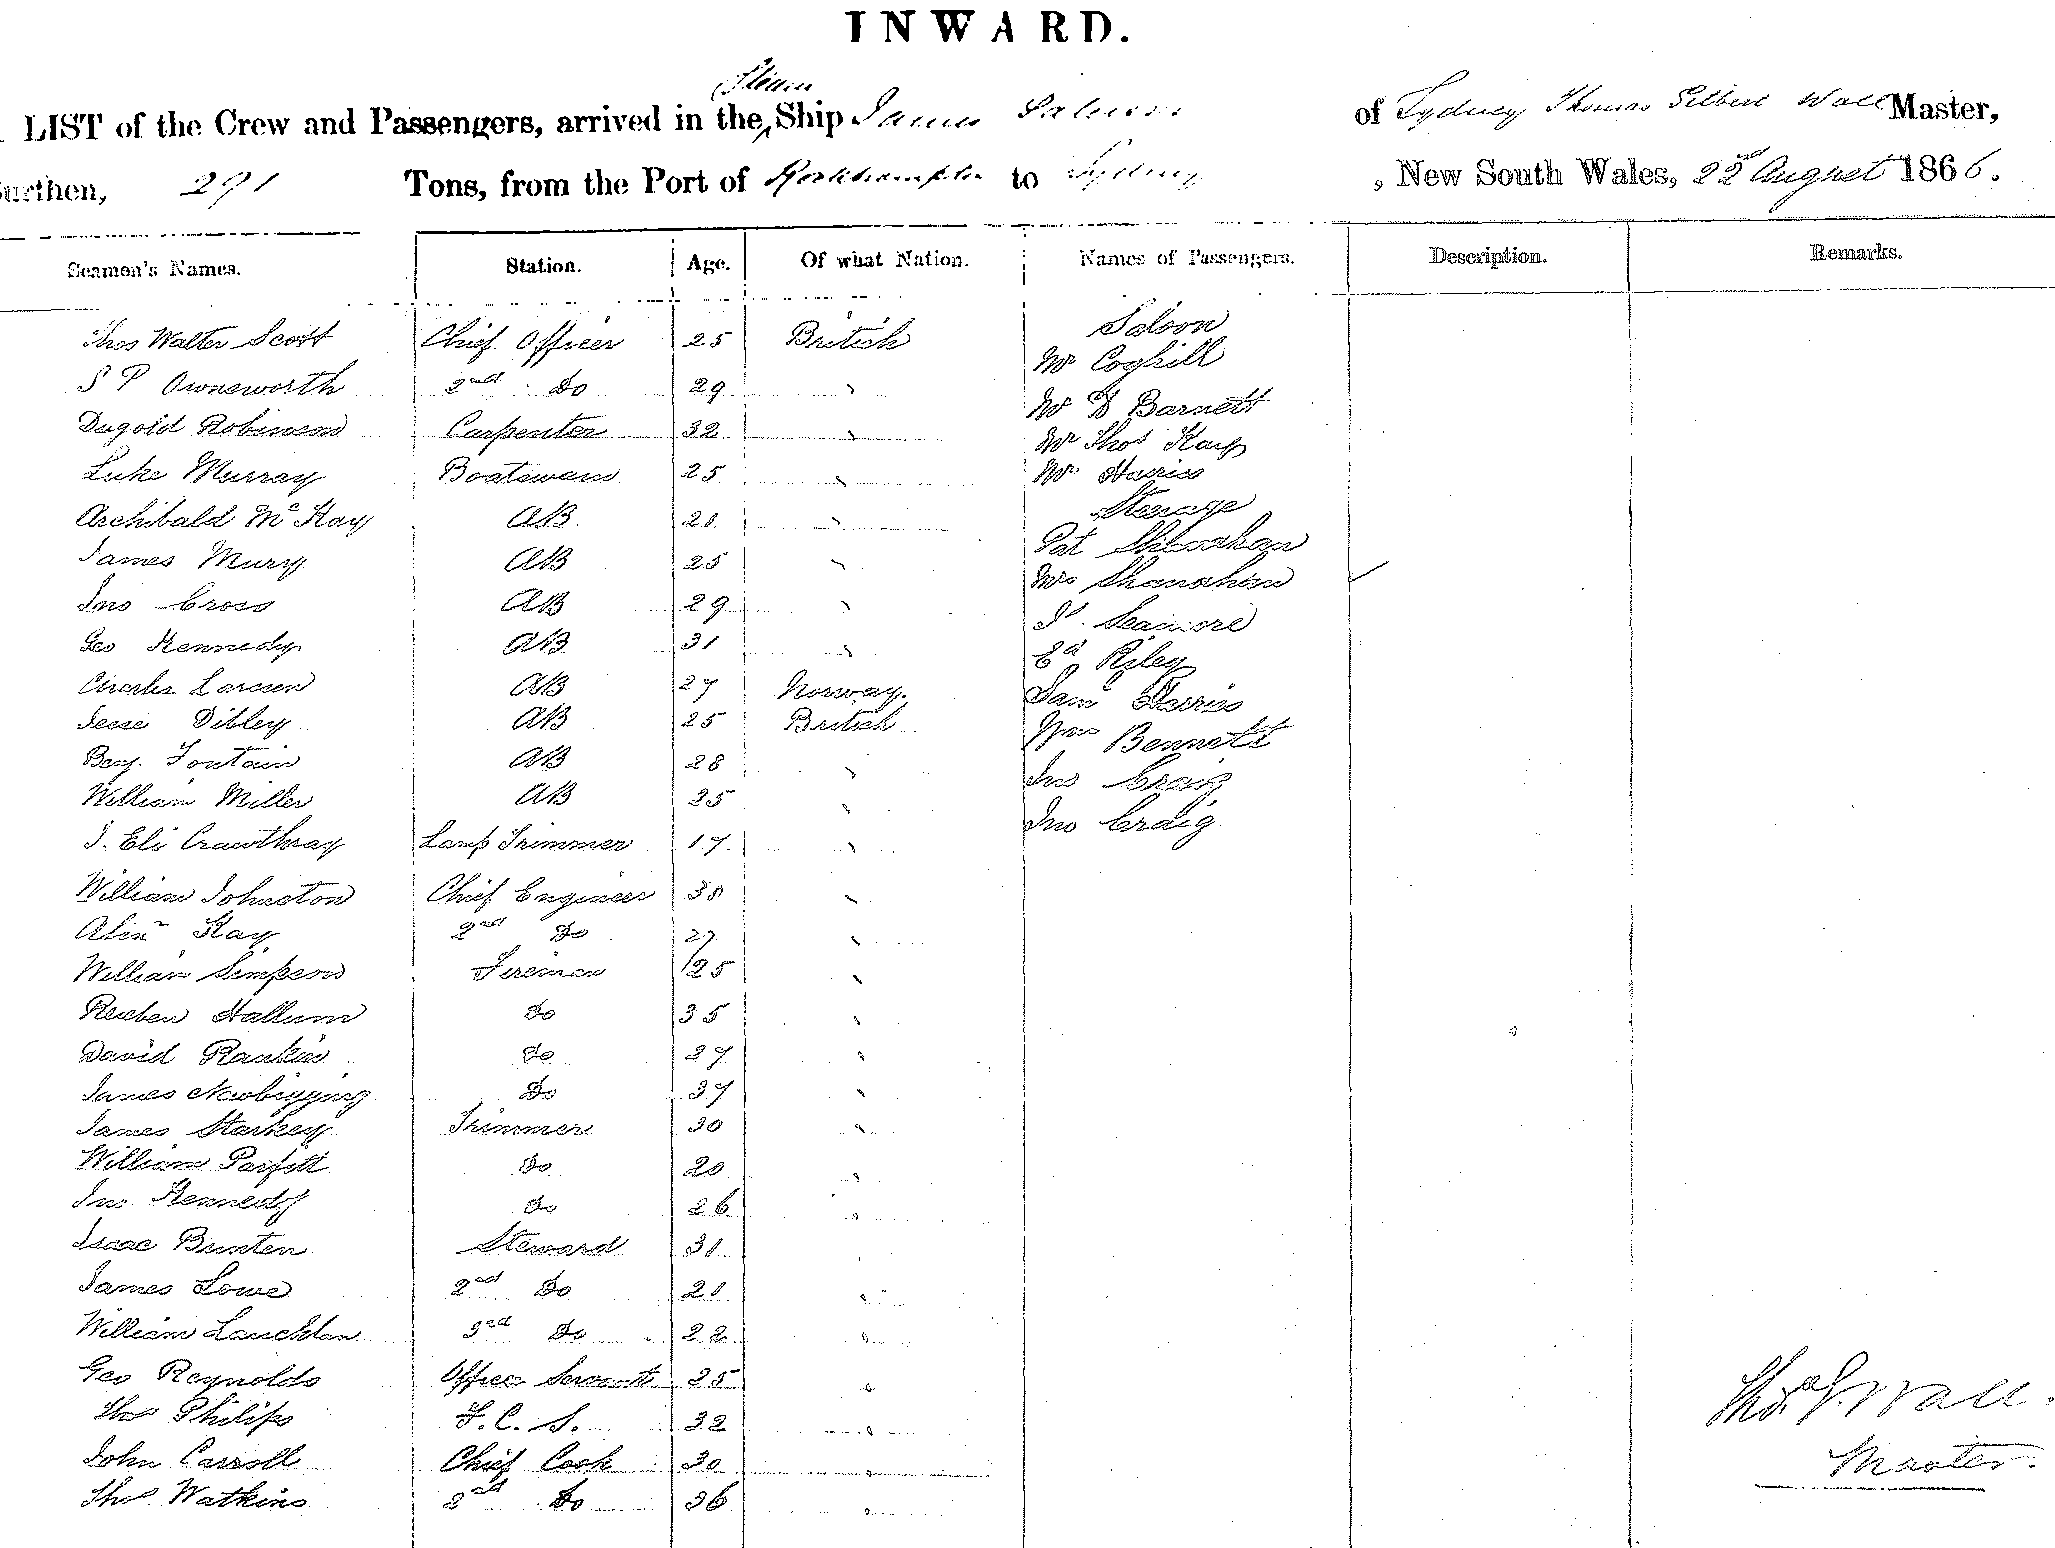 INWARD.
Steam
LIST of the Crew and Passengers, arrived in the Ship James of Sydney Thomas Gilbert Wall Master,
Burthen, 291 Tons, from the Port of Rockhampton to Sydney, New South Wales, 22nd August 1866.
Seamen's Names. Station. Age. Of what Nation. Names of Passengers. Description. Remarks.
Thos Walter Scott Chief Officer 25 British Saloon
Mr Coghill
S P Ownsworth 2nd Do 29 " Mr Barnett
Dugold Robinson Carpenter 32 " Mr Thos Kay
Luke Murray Boatswain 25 " Mr Harris
Archibald McKay AB 21 " Steerage
James Mury AB 25 " Pat Shanahan
Mrs Shanahan
Jno Cross AB 29 " Js Seamore
Geo Kennedy AB 31 " Ed Riley
Charles Larssen AB 27 Norway. Saml Harriss
Jesse Dibley AB 25 British Wm Bennett
Benj. Fontain AB 28 " Jno Craig
William Miller AB 35 " Jno Craig
J. Eli Crawthray Lamp Trimmer 17 "
William Johnston Chief Engineer 38 "
Kay 2nd Do 27 "
William Simpson Fireman 25 "
Reuben Hallum Do 35 "
David Rankin Do 27 "
James Newbigging Do 37 "
James Starkey Trimmer 30 "
William Parfett Do 20 "
Jno Kennedy Do 26 "
Isaac Bunten Steward 31
James Lowe 2nd Do 21 "
William Lauchlan 3rd Do 22 "
Geo Reynolds Officers Servant 25 "
Thos Philips F. C. S. 32 "
John Carroll Chief Cook 30 "
Thos Watkins 2nd Do 36 "
Thos. G. Wall.
Master.